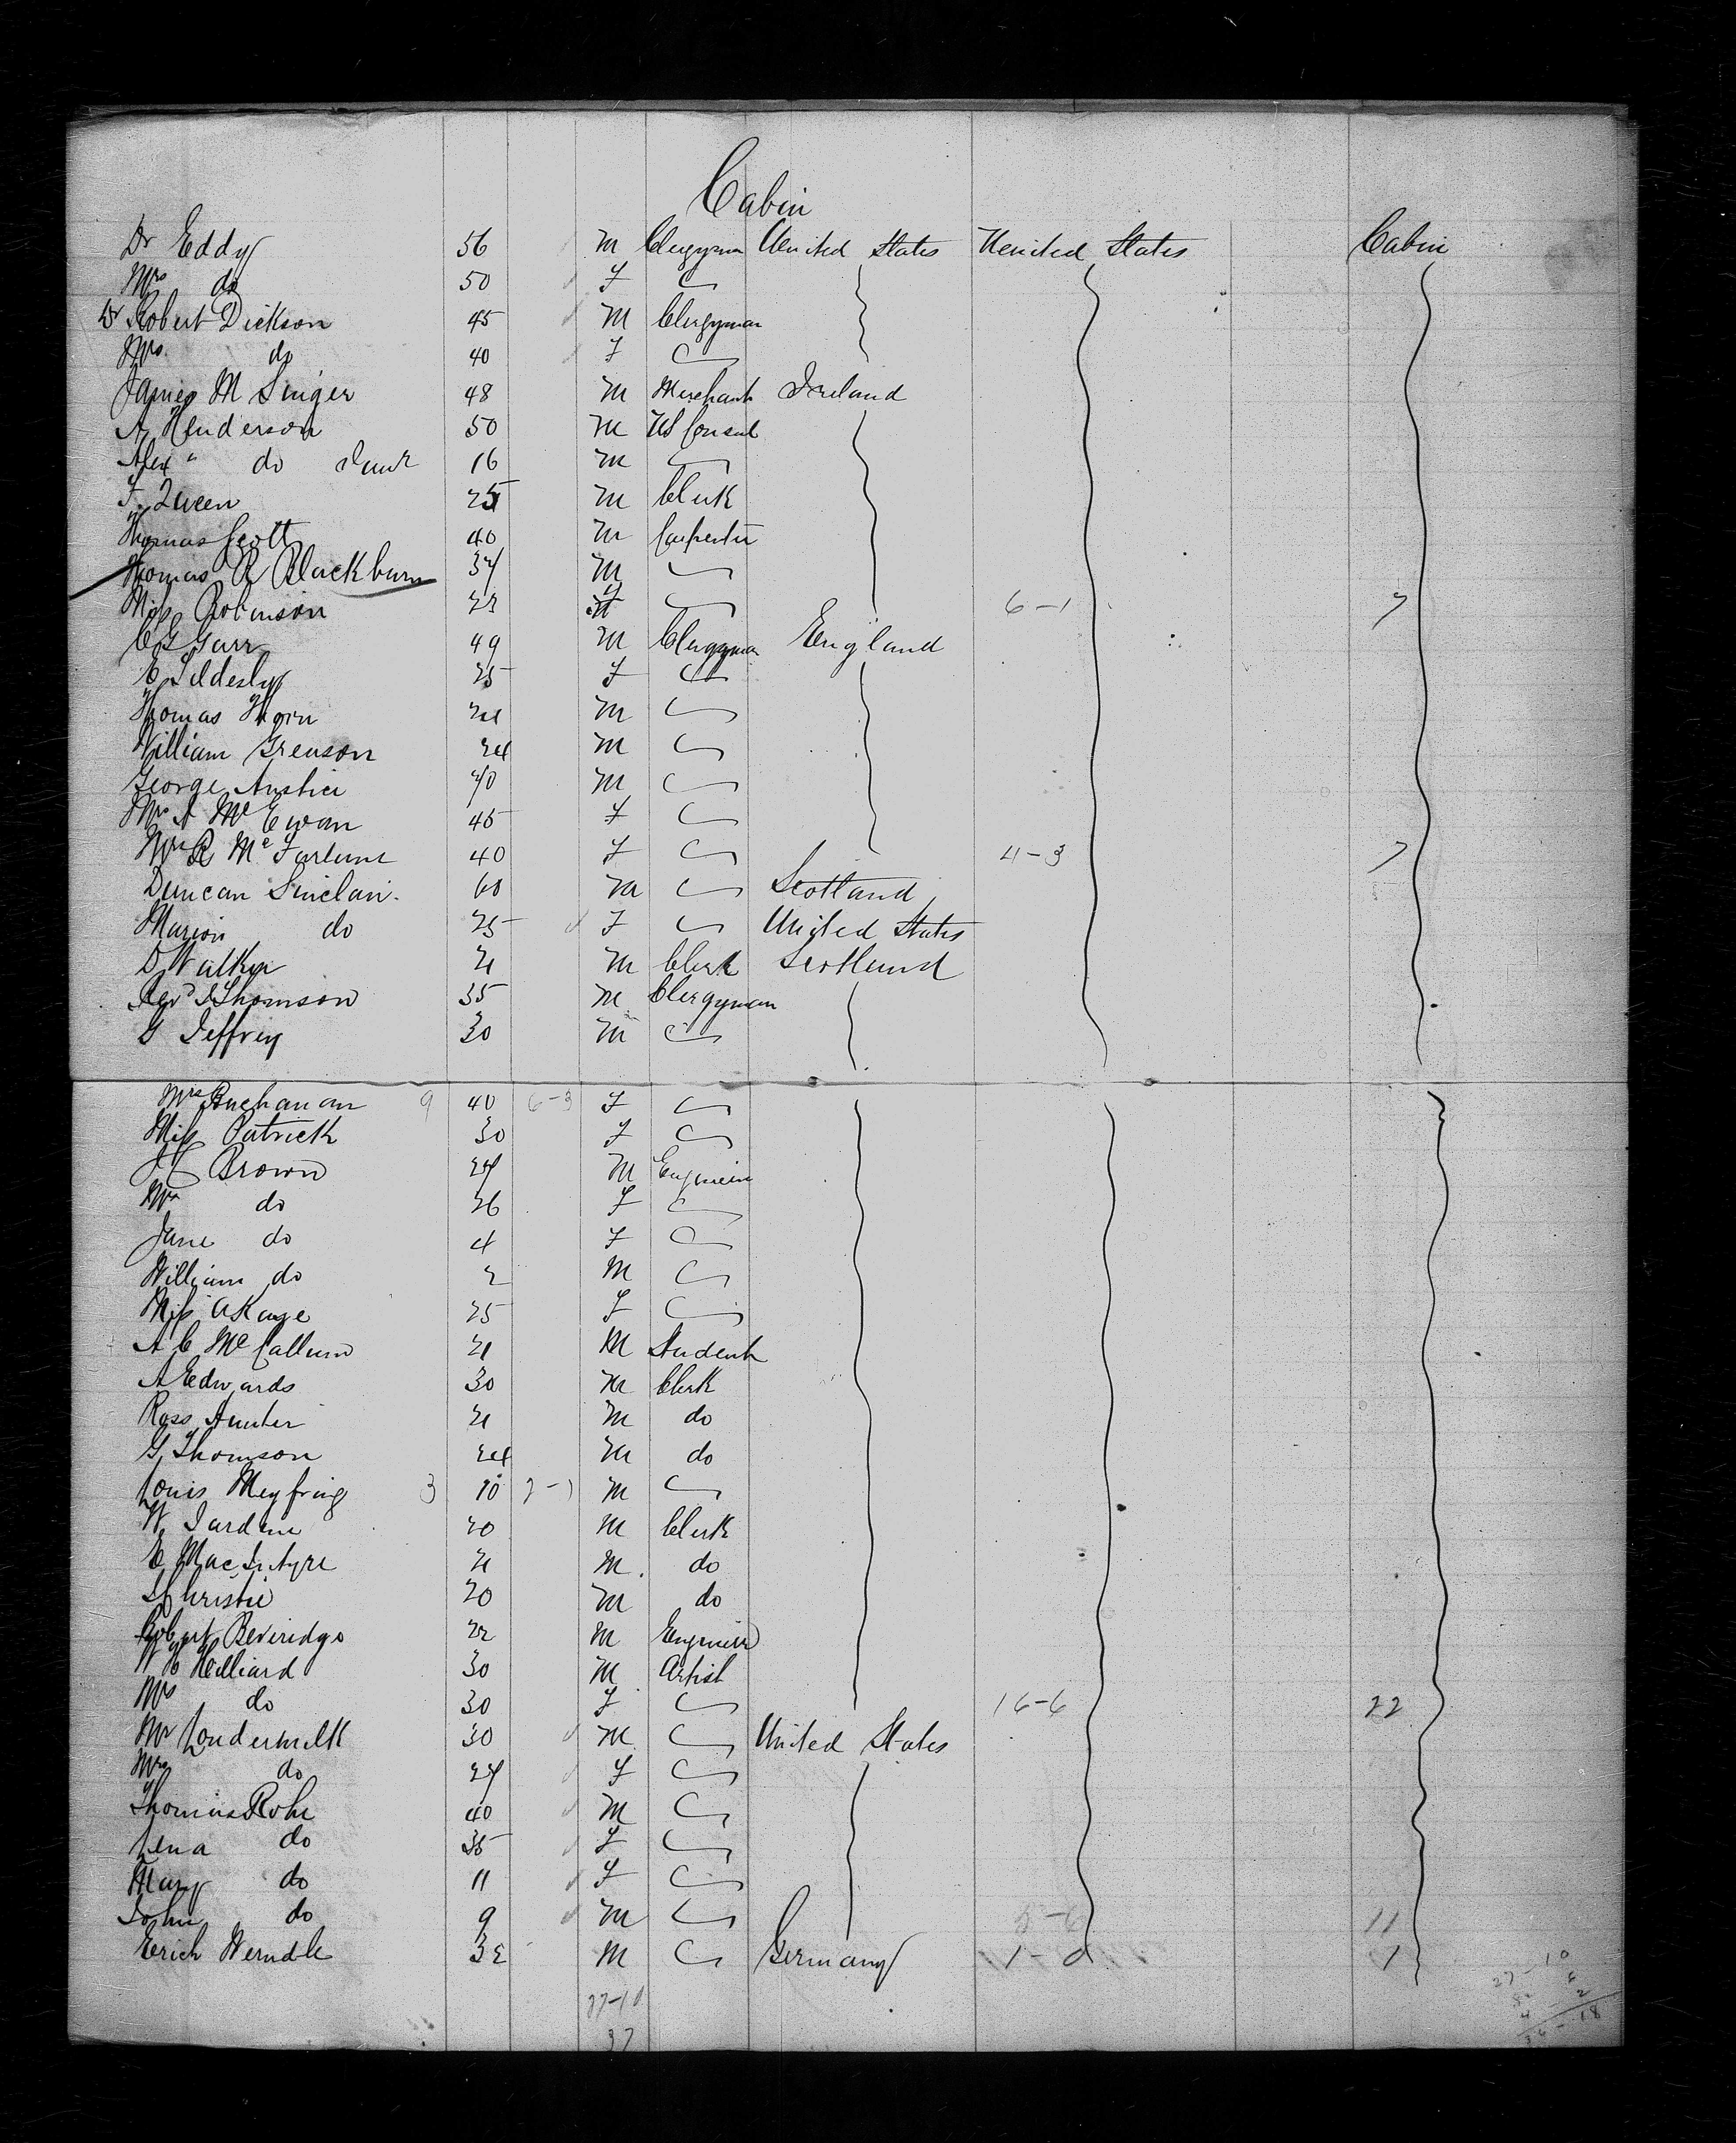 Cabin
Dr Eddy 56 M Clergyman United States United States Cabin
Mrs do 50 F
Dr Robert Dickson 45 M Clergyman
Mrs do 40 F
James M Singer 48 M Merchant Ireland
A Henderson 50 M US Consul
Alex " do Junr 16 M
F. Queen 25 M Clerk
Thomas Scott 40 M Carpenter
Thomas R Blackburn 34 M
Miss Robinson 22 F 6-1 7
49 M Clergyman England
E Tildesly 25 F
Thomas 24 M
William Grenson 24 M
George Austin 40 M
Mrs A McEwan 45 F
Mrs R McFarlane 40 F 4-3 7
Duncan Sinclair 60 M Scotland
Marion do 25 F United States
D Walker 21 M Clerk Scotland
Revd J Thomson 35 M Clergyman
G Jeffrey 30 M
Mrs Buchanan 9 40 6-3 F
Miss Patrick 30 F
Brown 24 M Engineer
Mrs do 26 F
Jane do 4 F
William do 2 M
Miss A Kaye 25 F
A C McCallum 21 M Student
A Edwards 30 M Clerk
Ross Hunter 21 M do
G Thomson 24 M do
Louis 3 M
W Jardine 20 M Clerk
E MacIntyre 21 M do
J Christie 20 M do
Robert Beveridge 22 M Engineer
W H Hilliard 30 M Artist
Mrs do 30 F 16-6 22
Mr Loudermilk 30 M United States
Mrs do 24 F
Thomas Rohe 40 M
Lena do 35 F
Mary do 11 F
John do 9 M 11
Erich Werndle 32 M Germany 1-0 1
27-10
37